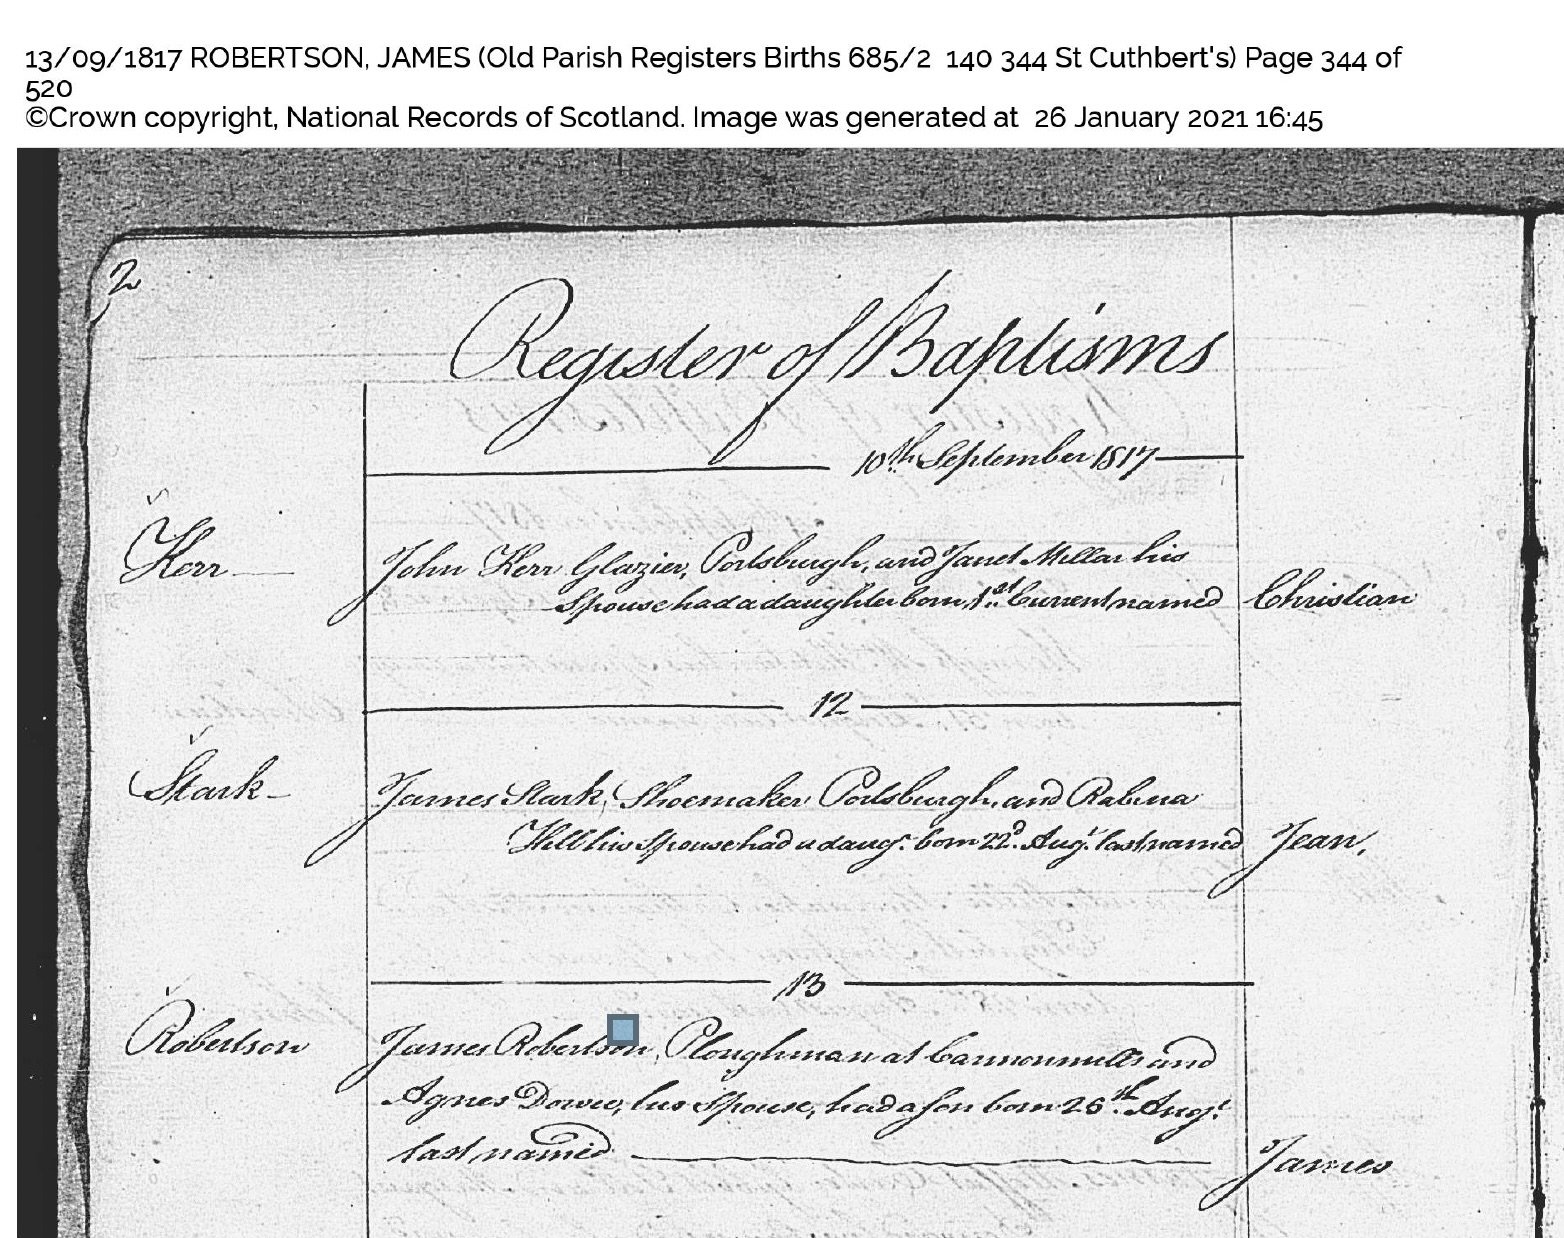 13/09/1817 ROBERTSON, JAMES (Old Parish Registers Births 685/2 140 344 St Cuthbert's) Page 344 of
520
©Crown copyright, National Records of Scotland. Image was generated at 26 January 2021 16:45
2
Register of Baptisms
10th September 1817
Kerr
John Kerr Glazier, Portsburgh, and Janet Millar his
Spouse had a daughter born 1st Current named Christian
12
Stark
James Stark, Shoemaker Portsburgh, and Rabina
Hill his Spouse had a daugr. born 22d. Augt. last named Jean,
13
Robertson
James Robertson, Ploughman at Cannonmills and
Agnes Dowie, his Spouse, had a son born 26th Augt.
last, named James